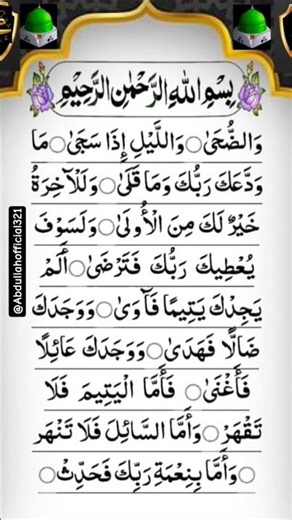 بِسْمِ اللهِ الرَّحْمٰنِ الرَّحِيْمِ
وَالضُّحَىٰ ○ وَاللَّيْلِ إِذَا سَجَىٰ ○ مَا
وَدَّعَكَ رَبُّكَ وَمَا قَلَىٰ ○ وَلَلْآخِرَةُ
خَيْرٌ لَكَ مِنَ الْأُولَىٰ ○ وَلَسَوْفَ
يُعْطِيكَ رَبُّكَ فَتَرْضَىٰ ○ أَلَمْ
يَجِدْكَ يَتِيمًا فَآوَىٰ ○ وَوَجَدَكَ
ضَالًّا فَهَدَىٰ ○ وَوَجَدَكَ عَائِلًا
فَأَغْنَىٰ ○ فَأَمَّا الْيَتِيمَ فَلَا
تَقْهَرْ ○ وَأَمَّا السَّائِلَ فَلَا تَنْهَر
○ وَأَمَّا بِنِعْمَةِ رَبِّكَ فَحَدِّثْ ○
@Abdullahofficial321